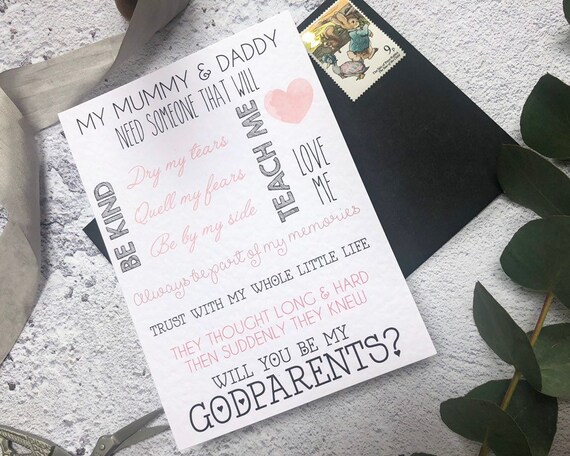 MY MUMMY & DADDY
NEED SOMEONE THAT WILL
BE KIND
Dry my tears
Quell my fears
Be by my side
TEACH ME
LOVE
ME
Always be part of my memories
TRUST WITH MY WHOLE LITTLE LIFE
THEY THOUGHT LONG & HARD
THEN SUDDENLY THEY KNEW
WILL YOU BE MY
GODPARENTS?
9p